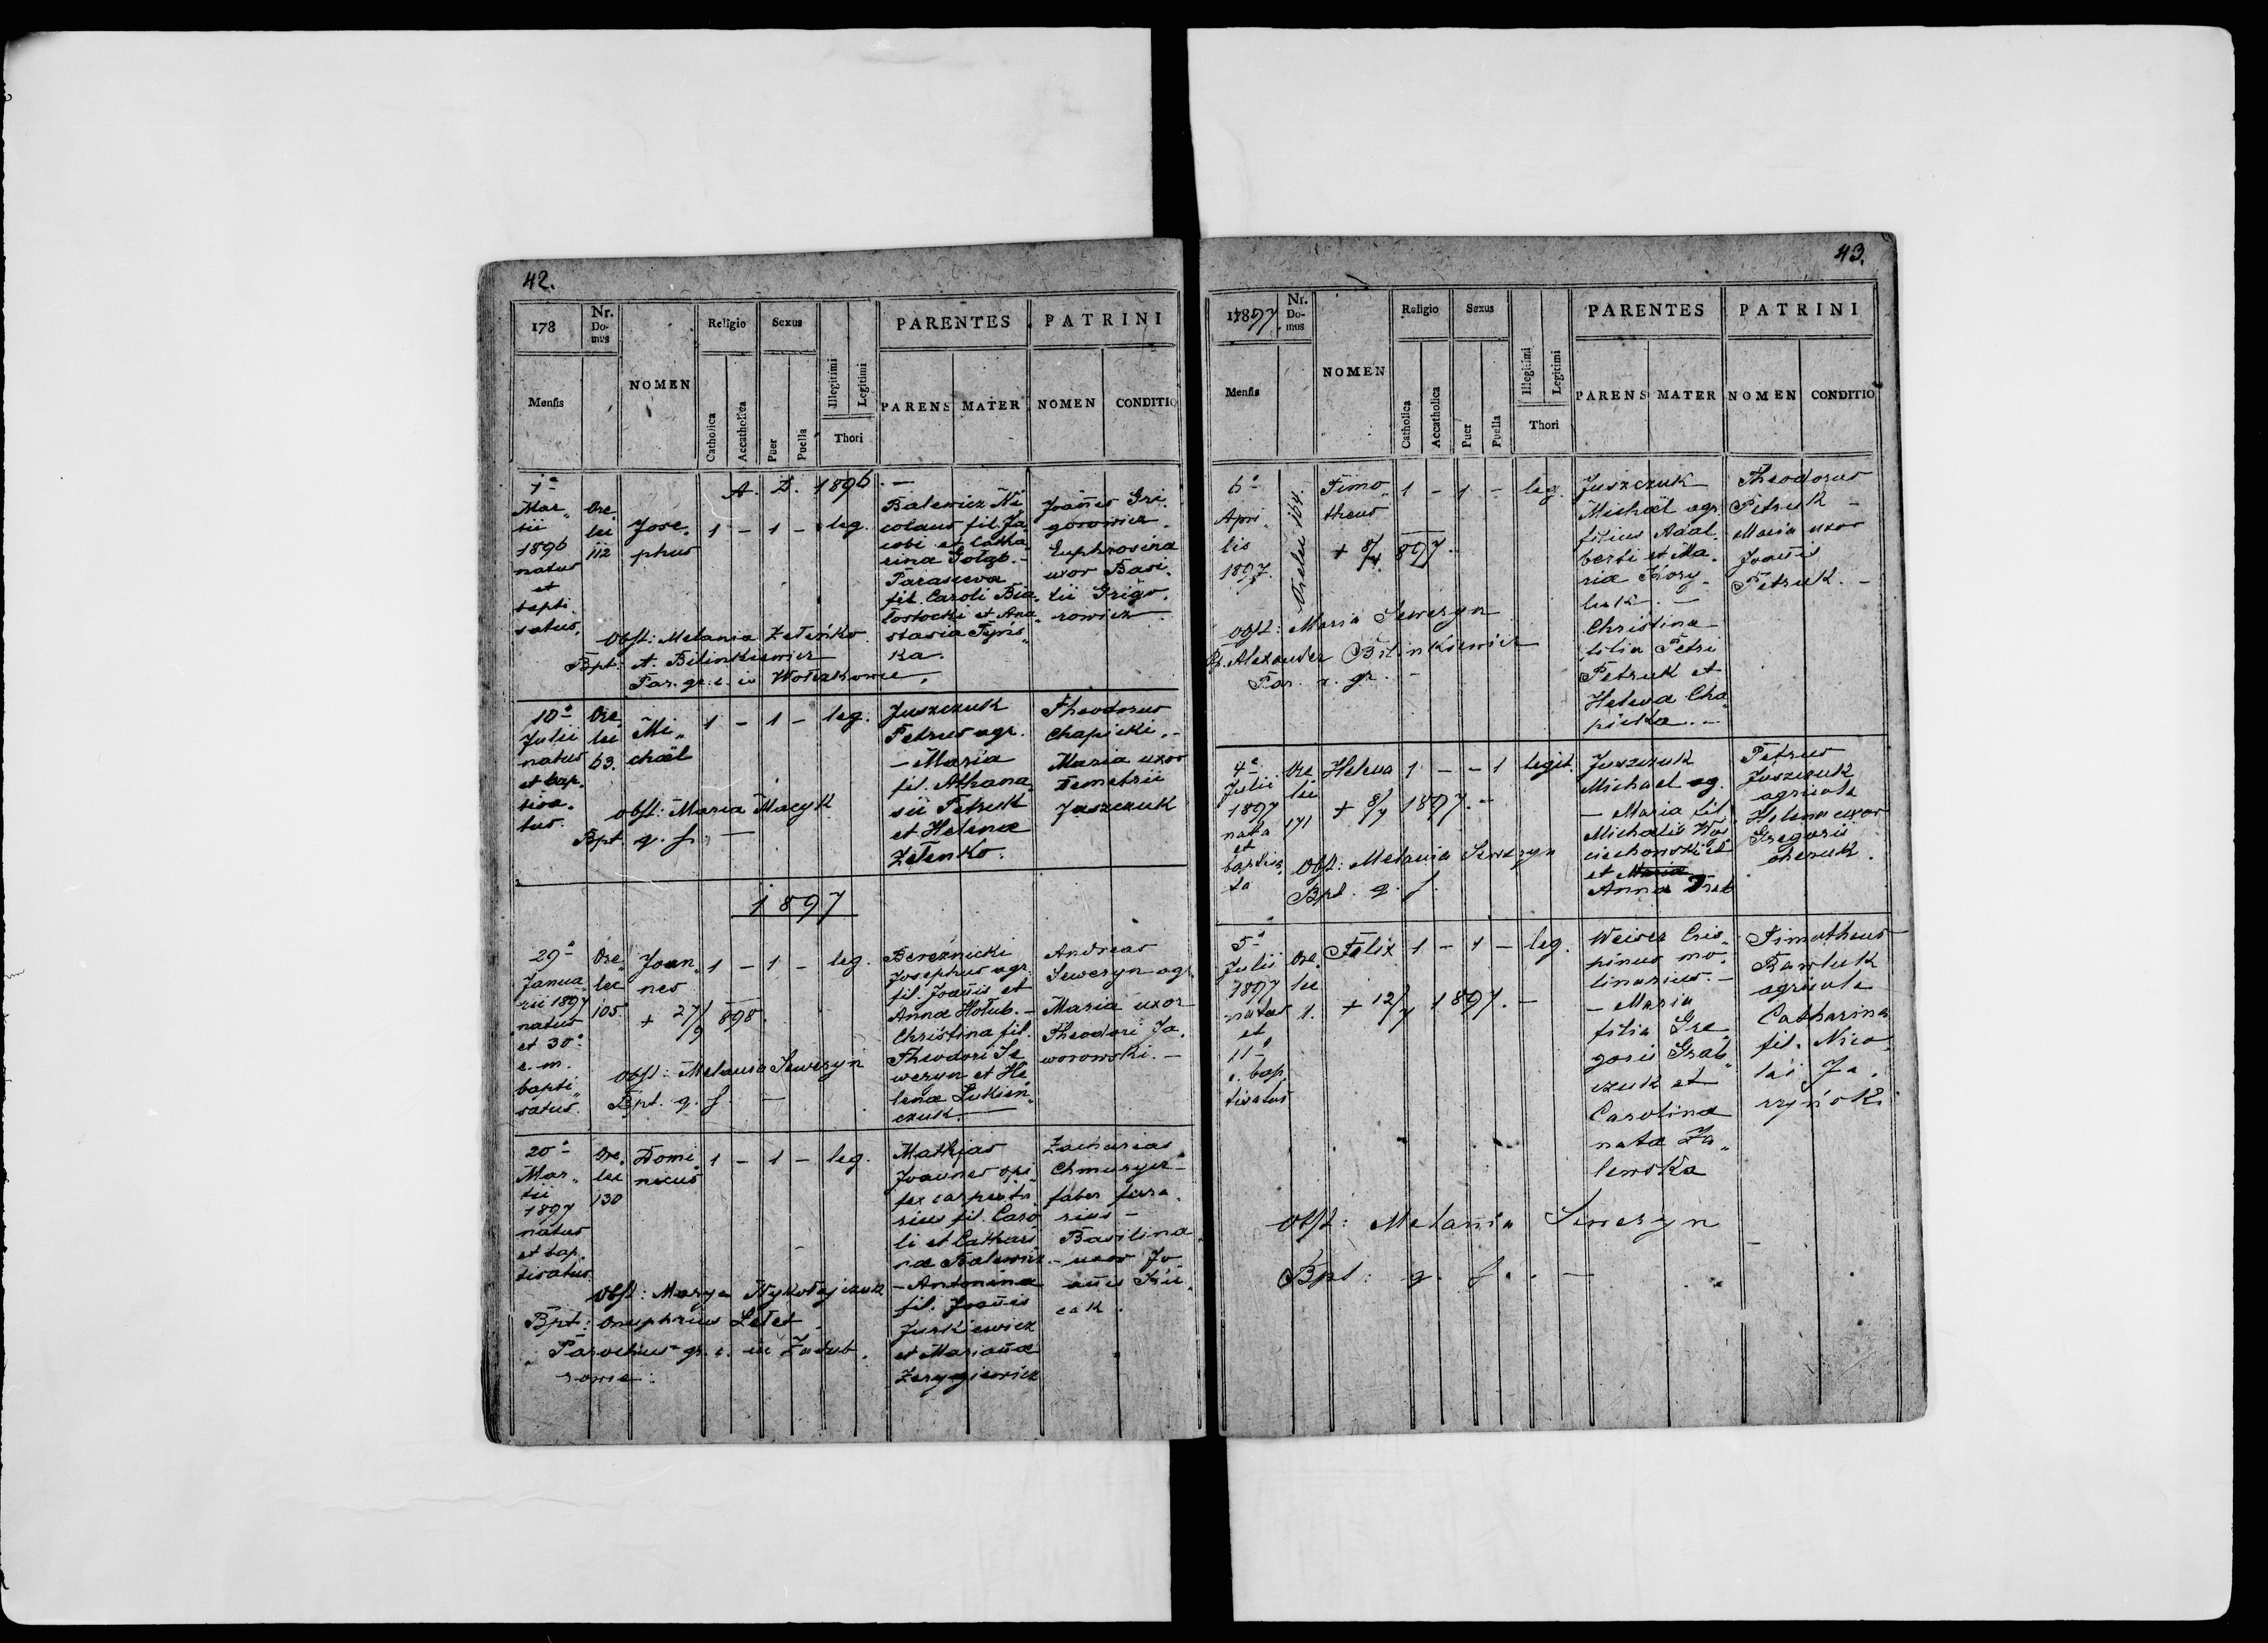 42.
178
Nr. Domus
NOMEN
Religio
Sexus
Illegitimi
Legitimi
PARENTES
PATRINI
Mensis
Catholica
Accatholica
Puer
Puella
Thori
PARENS
MATER
NOMEN
CONDITIO
A. D. 1896. —
1ª
Mar„
tii
1896
natus
et
bapti„
satus.
Ore„
lei
112
Jose„
phus
1 - 1 - leg.
Batewicz Ni„
colaus fil. Ja„
cobi et Catha„
rina Gołąb. -
Parasceva
fil. Caroli Bia„
łostocki et Ana„
stasia Tyńs„
ka.
Joañes Gri„
gorowicz.
Euphrosina
uxor Basi„
lii Grigo„
rowicz.
Obst: Melania Zełeńko.
Bpt: A. Bilinkiewicz
Par. gr. c. in Wołczkowie.
10ª
Julii
natus
et bap„
tisa„
tus.
Ore„
lei
63.
Mi„
chäl
1 - 1 - leg.
Juszczuk
Petrus agr.
- Maria
fil. Athana„
sii Petruk
et Helena
Zełenko.
Theodorus
Chapicki. -
Maria uxor
Demetrii
Juszczuk
Obst: Maria Macyk
Bpt. q. s. —
1897
29ª
Janua„
rii 1897
natus
et 30ª
e. m.
bapti„
satus.
Ore„
lec
105.
Joan„
nes
1 - 1 - leg.
+ 27/9 898.
Bereznicki
Josephus agr.
fil. Joañis et
Anna Hołub. -
Christina fil.
Theodori Se„
weryn et He„
lena Łukien„
czuk.
Andreas
Seweryn agr.
Maria uxor
Theodori Ja„
worowski. -
Obst: Melania Seweryn
Bpt. q. s. —
20ª
Mar„
tii
1897
natus
et bap„
tisatus.
Ore„
lei
130
Domi„
nicus
1 - 1 - leg.
Mathias
Joannes opi„
fex carpenta„
rius fil. Caro„
li et Cathari„
na Balewicz.
- Antonina
fil. Joañis
Jurkiewicz
et Mariaña
Zarygiewicz
Zacharias
Chmuryez
faber ferra„
rius -
Basilina
- uxor Jo„
añis
Obst: Marya Mykołajczuk
Bpt: Onuphrius Lełet
Parochus gr. c. in Zadub„
rowie.
43.
17897
Nr. Domus
NOMEN
Religio
Sexus
Illegitimi
Legitimi
PARENTES
PATRINI
Mensis
Catholica
Accatholica
Puer
Puella
Thori
PARENS
MATER
NOMEN
CONDITIO
6ª
Apri„
lis
1897.
Orelei 164.
Timo„
theus
1 - 1 - leg.
+ 8/4 897.
Juszczuk
Michäl agr.
filius Adal„
berti et Ma„
ria Kory„
luk. —
Christina
filia Petri
Petruk et
Helena Cha„
picka. -
Theodorus
Petruk -
Maria uxor
Joañis
Petruk. -
Obst: Maria Seweryn
Bp. Alexander Bilinkiewicz
Par. r. gr. -
4ª
Julii
1897
nata
et
baptiza„
ta
Ore„
lei
171
Helena 1 - - 1 legit.
+ 8/7 1897. -
Juszczuk
Michael ag.
- Maria fil.
Michaelis Woj„
ciechowski et
et Maria
Anna
Petrus
Juszczuk
agricola
Helena uxor
Gregorii
Obst: Melania Seweryn
Bpt. q. s.
5ª
Julii
1897
natus
et
11ª
e. bap„
tisatus
Ore„
lei
1.
Felix 1 - 1 - leg.
+ 12/7 1897. -
Weiser Cris„
pinus mo„
linarius. -
- Maria
filia Gre„
gorii Grab„
czuk et
Carolina
nata Za„
lewska
Timotheus
Pawluk
agricola
Catharina
fil. Nico„
lai Ja„
rzyński
Obst: Melania Seweryn
Bpt: q. s. —